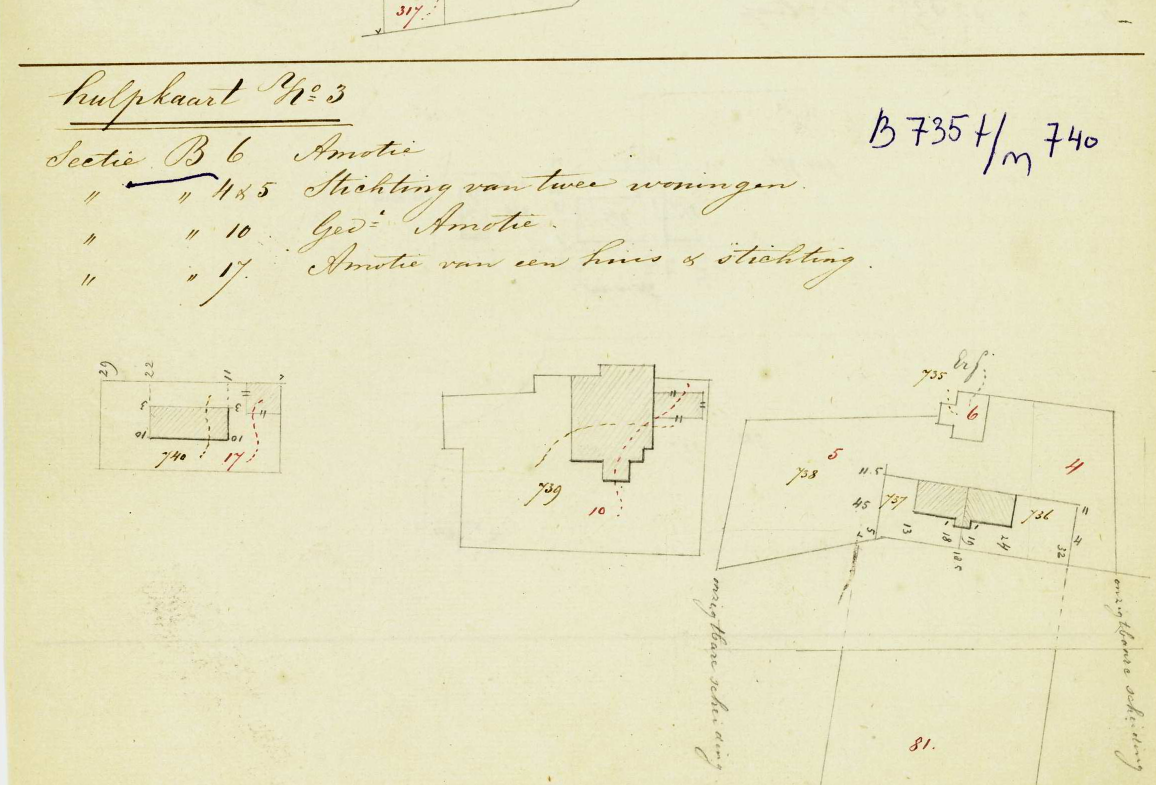 317
hulpkaart No 3
B 735 t/m 740
Sectie B 6 Amotie
" " 4 & 5 Stichting van twee woningen.
" " 10 Ged: Amotie.
" " 17. Amotie van een huis & stichting.
29 22 11
3 3 "
10 10 "
740 17
" "
"
739
10
735 Erf
6
5 4
738 11.5
45 737 736 "
5 13 18 19 24 32 4
18.5
onzigtbare scheiding
onzigtbaare scheiding
81.